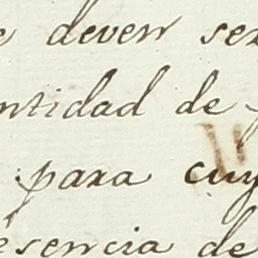 e deven ser
ntidad de
para cuy
esencia de